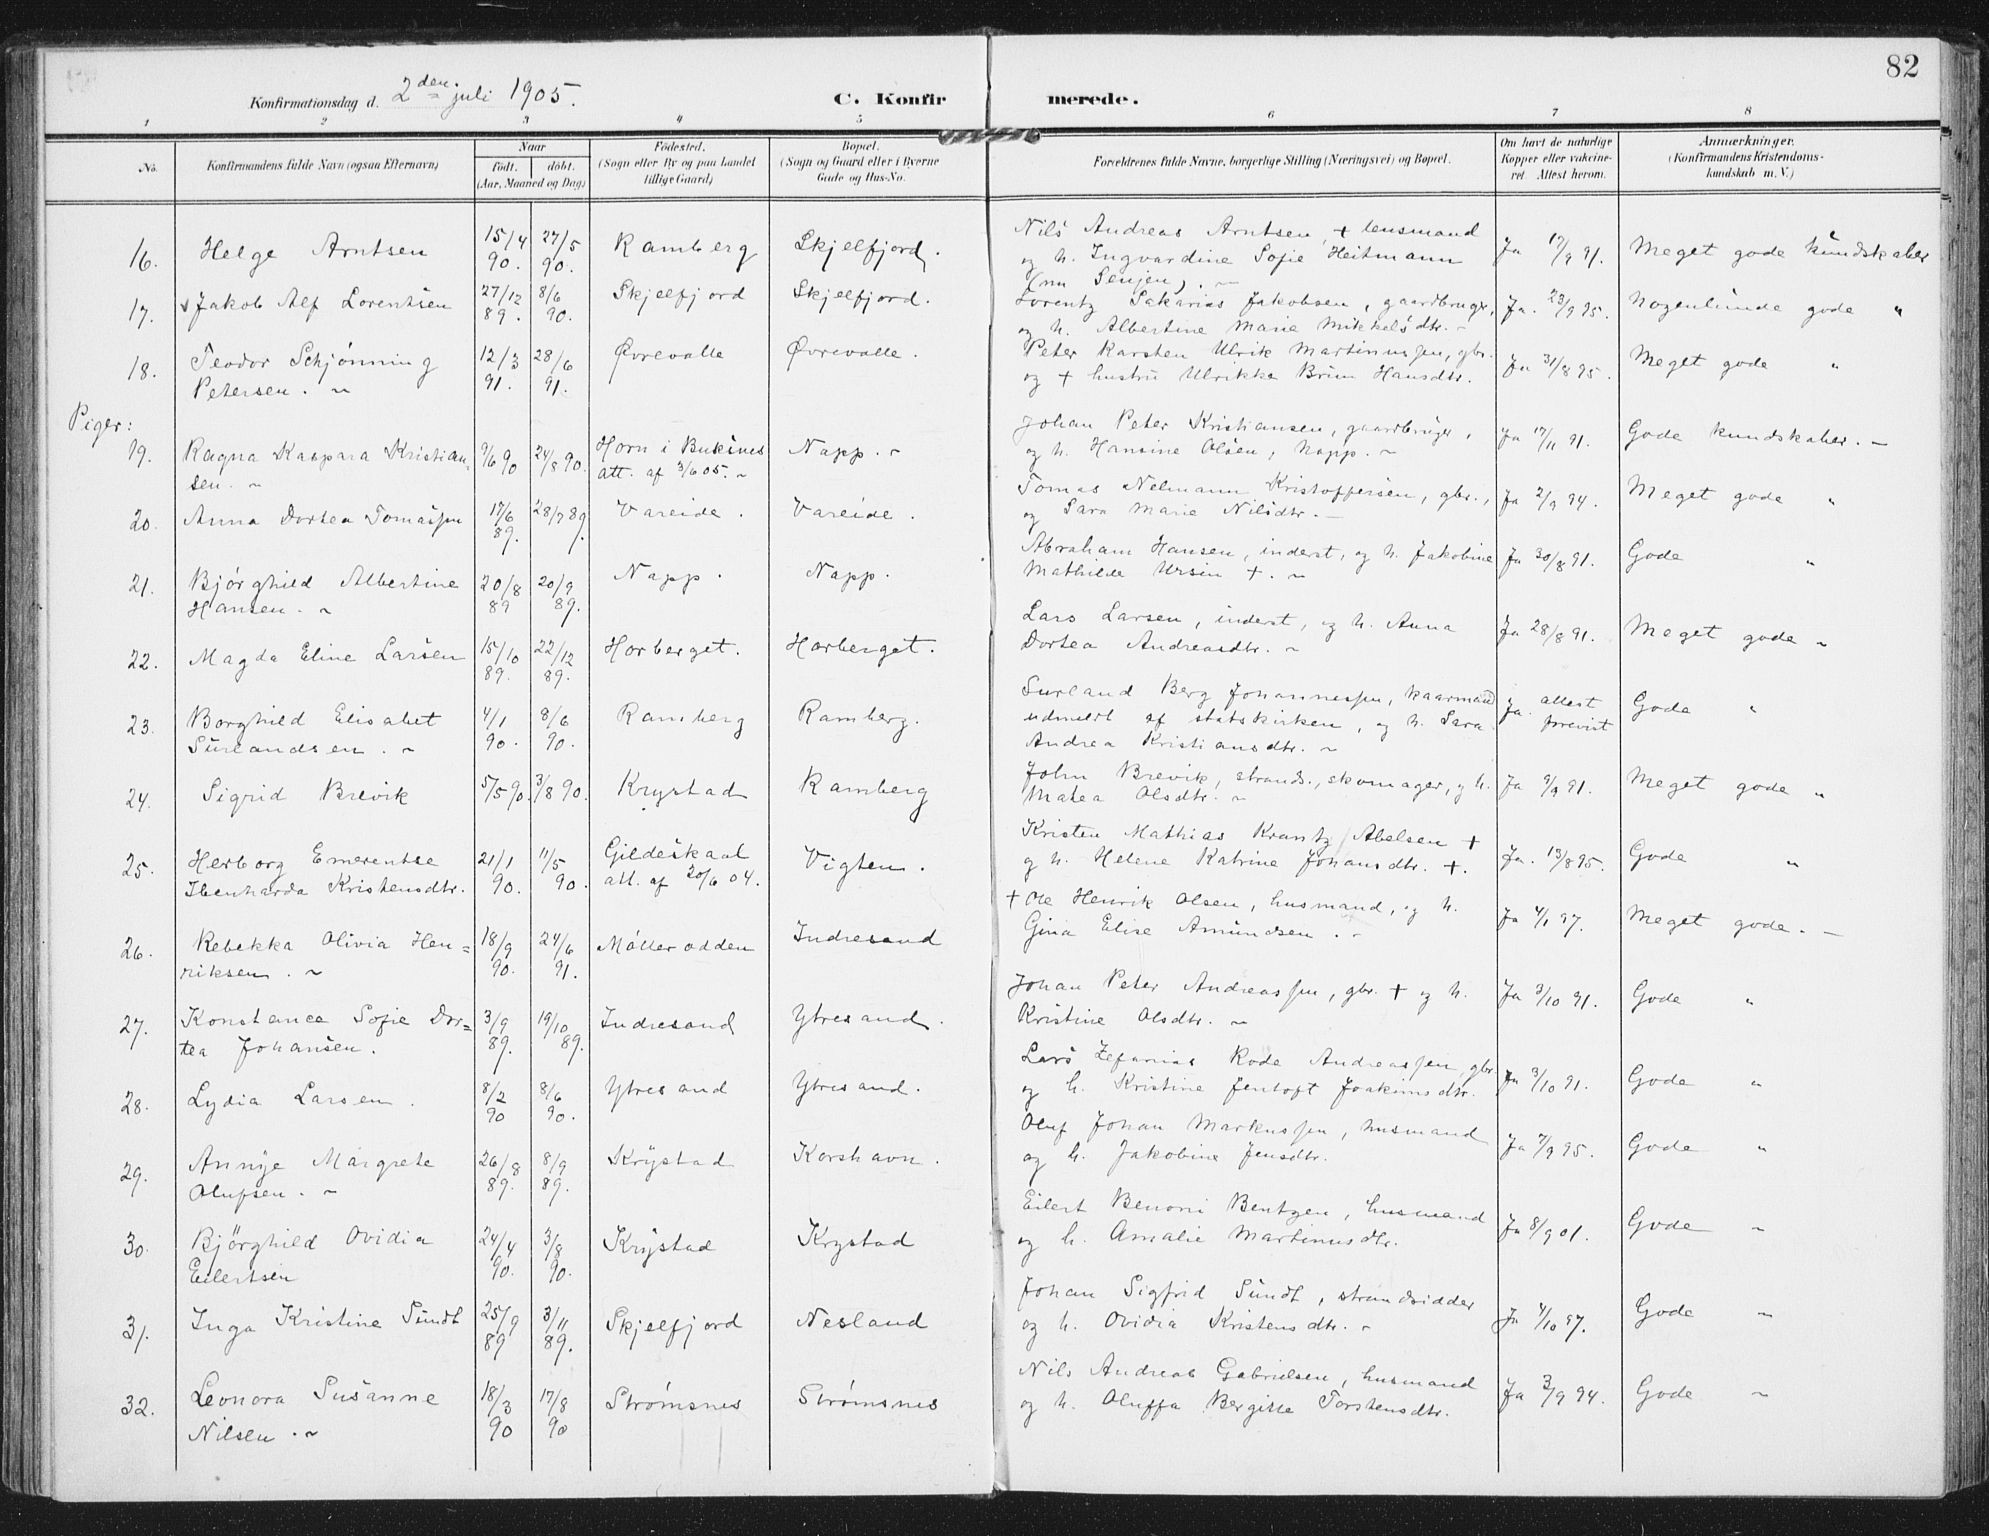 82
Konfirmationsdag d. 2den juli 1905.
C. Konfirmerede.
1 2 3 4 5 6 7 8
No. Konfirmandens fulde Navn (ogsaa Efternavn) Naar født. døbt. (Aar, Maaned og Dag) Fødested. (Sogn eller By og paa Landet tillige Gaard) Bopæl. (Sogn og Gaard eller i Byerne Gade og Hus-No. Forældrenes fulde Navne, borgerlige Stilling (Næringsvei) og Bopæl. Om havt de naturlige Kopper eller vakcineret Attest herom. Anmærkninger. (Konfirmandens Kristendomskundskab m. V.)
16. Helge Arntsen 15/4 90. 27/5 90. Ramberg Skjelfjord. Nils Andreas Arntsen, + lensmand
og h. Ingvardine Sofie Heitmann Ja 17/9 91. Meget gode kundskaber
(nu Senjen). ~
17. Jakob Alf Lorentsen 27/12 89. 8/6 90. Skjelfjord Skjelfjord. Lorentz Sakarias Jakobsen, gaardbruger, Ja. 23/9 95. Nogenlunde gode "
og h. Albertine Marie Mikkelsdtr. ~
18. Teodor Schjønning 12/3 91. 28/6 91. Øvrevalle Øvrevalle. Peter Karsten Ulrik Martinussen, gbr. Ja 31/8 95. Meget gode "
Petersen. ~ og + hustru Ulrikke Brun Hansdtr.
Piger:
19. Ragna Kaspara Kristian- 9/6 90 24/8 90. Horn i Buksnes Napp. ~ Johan Peter Kristiansen, gaardbruger, Ja 17/11 91. Gode kundskaber. ~
sen. ~ att. af 3/6 05. ~ og h. Hansine Olsen, Napp. ~
20. Anna Dortea Tomassen 17/6 89. 28/7 89. Vareide. Vareide. Tomas Nelmann Kristoffersen, gbr., Ja 2/9 94. Meget gode "
og Sara Marie Nilsdtr. ~
21. Bjørghild Albertine 20/8 89 20/9 89. Napp. Napp. Abraham Hansen, inderst, og h. Jakobine Ja 30/8 91. Gode "
Hansen. ~ Mathilde Ursin +. ~
22. Magda Eline Larsen 15/10 89. 22/12 89. Horberget. Horberget. Lars Larsen, inderst, og h. Anna Ja 28/8 91. Meget gode ~
Dortea Andreasdtr. ~
23. Borghild Elisabet 4/1 90. 8/6 90. Ramberg Ramberg. Surland Berg Johannessen, kaarmand Ja. attest Gode "
Surlandsen. ~ udmeldt af statskirken, og h. Sara previst
Andrea Kristiansdtr. ~
24. Sigrid Brevik 5/5 90. 3/8 90. Krystad Ramberg John Brevik, strands., skomager, og h. Ja 9/9 91. Meget gode "
Matea Olsdtr. ~
25. Herborg Emerentse 21/1 90. 11/5 90. Gildeskaal Vigten. Kristen Mathias Krantz Abelsen + Ja. 13/8 95. Gode "
Ibenharda Kristensdtr. att. af 20/6 04. og h. Helene Katrine Johansdtr. +.
26. Rebekka Olivia Hen= 18/9 90. 24/6 91. Møllerodden Indresand + Ole Henrik Olsen, husmand, og h. Ja 4/1 97. Meget gode. ~
riksen. ~ Gina Elise Amundsen. ~
27. Konstance Sofie Dor= 3/9 89. 19/10 89. Indresand Ytresand. Johan Peter Andreassen, gbr. + og h. Ja 3/10 91. Gode "
tea Johansen. Kristine Olsdtr. ~
28. Lydia Larsen. 8/2 90 8/6 90. Ytresand Ytresand. Lars Zefanias Rode Andreassen, gbr. Ja 3/10 91. Gode "
og h. Kristine Jentoft Joakimsdtr.
29. Annye Margrete 26/8 89. 8/9 89. Krystad Korshavn. Oluf Johan Markussen, husmand Ja 7/9 95. Gode "
Olufsen. ~ og h. Jakobine Jensdtr.
30. Bjørghild Ovidia 24/4 90. 3/8 90. Krystad Krystad Eilert Benoni Bentzen, husmand Ja 8/9 01. Gode ~
Eilertsen og h. Amalie Martinusdtr.
31. Inga Kristine Sundt 25/9 89 3/11 89. Skjelfjord Nesland Johan Sigfrid Sundt, strandsidder Ja 4/10 97. Gode ~
og h. Ovidia Kristensdtr. ~
32. Leonora Susanne 18/3 90 17/8 90 Strømsnes Strømsnes Nils Andreas Gabrielsen, husmand Ja 3/9 94. Gode ~
Nilsen. ~ og h. Oluffa Bergitte Torstensdtr.